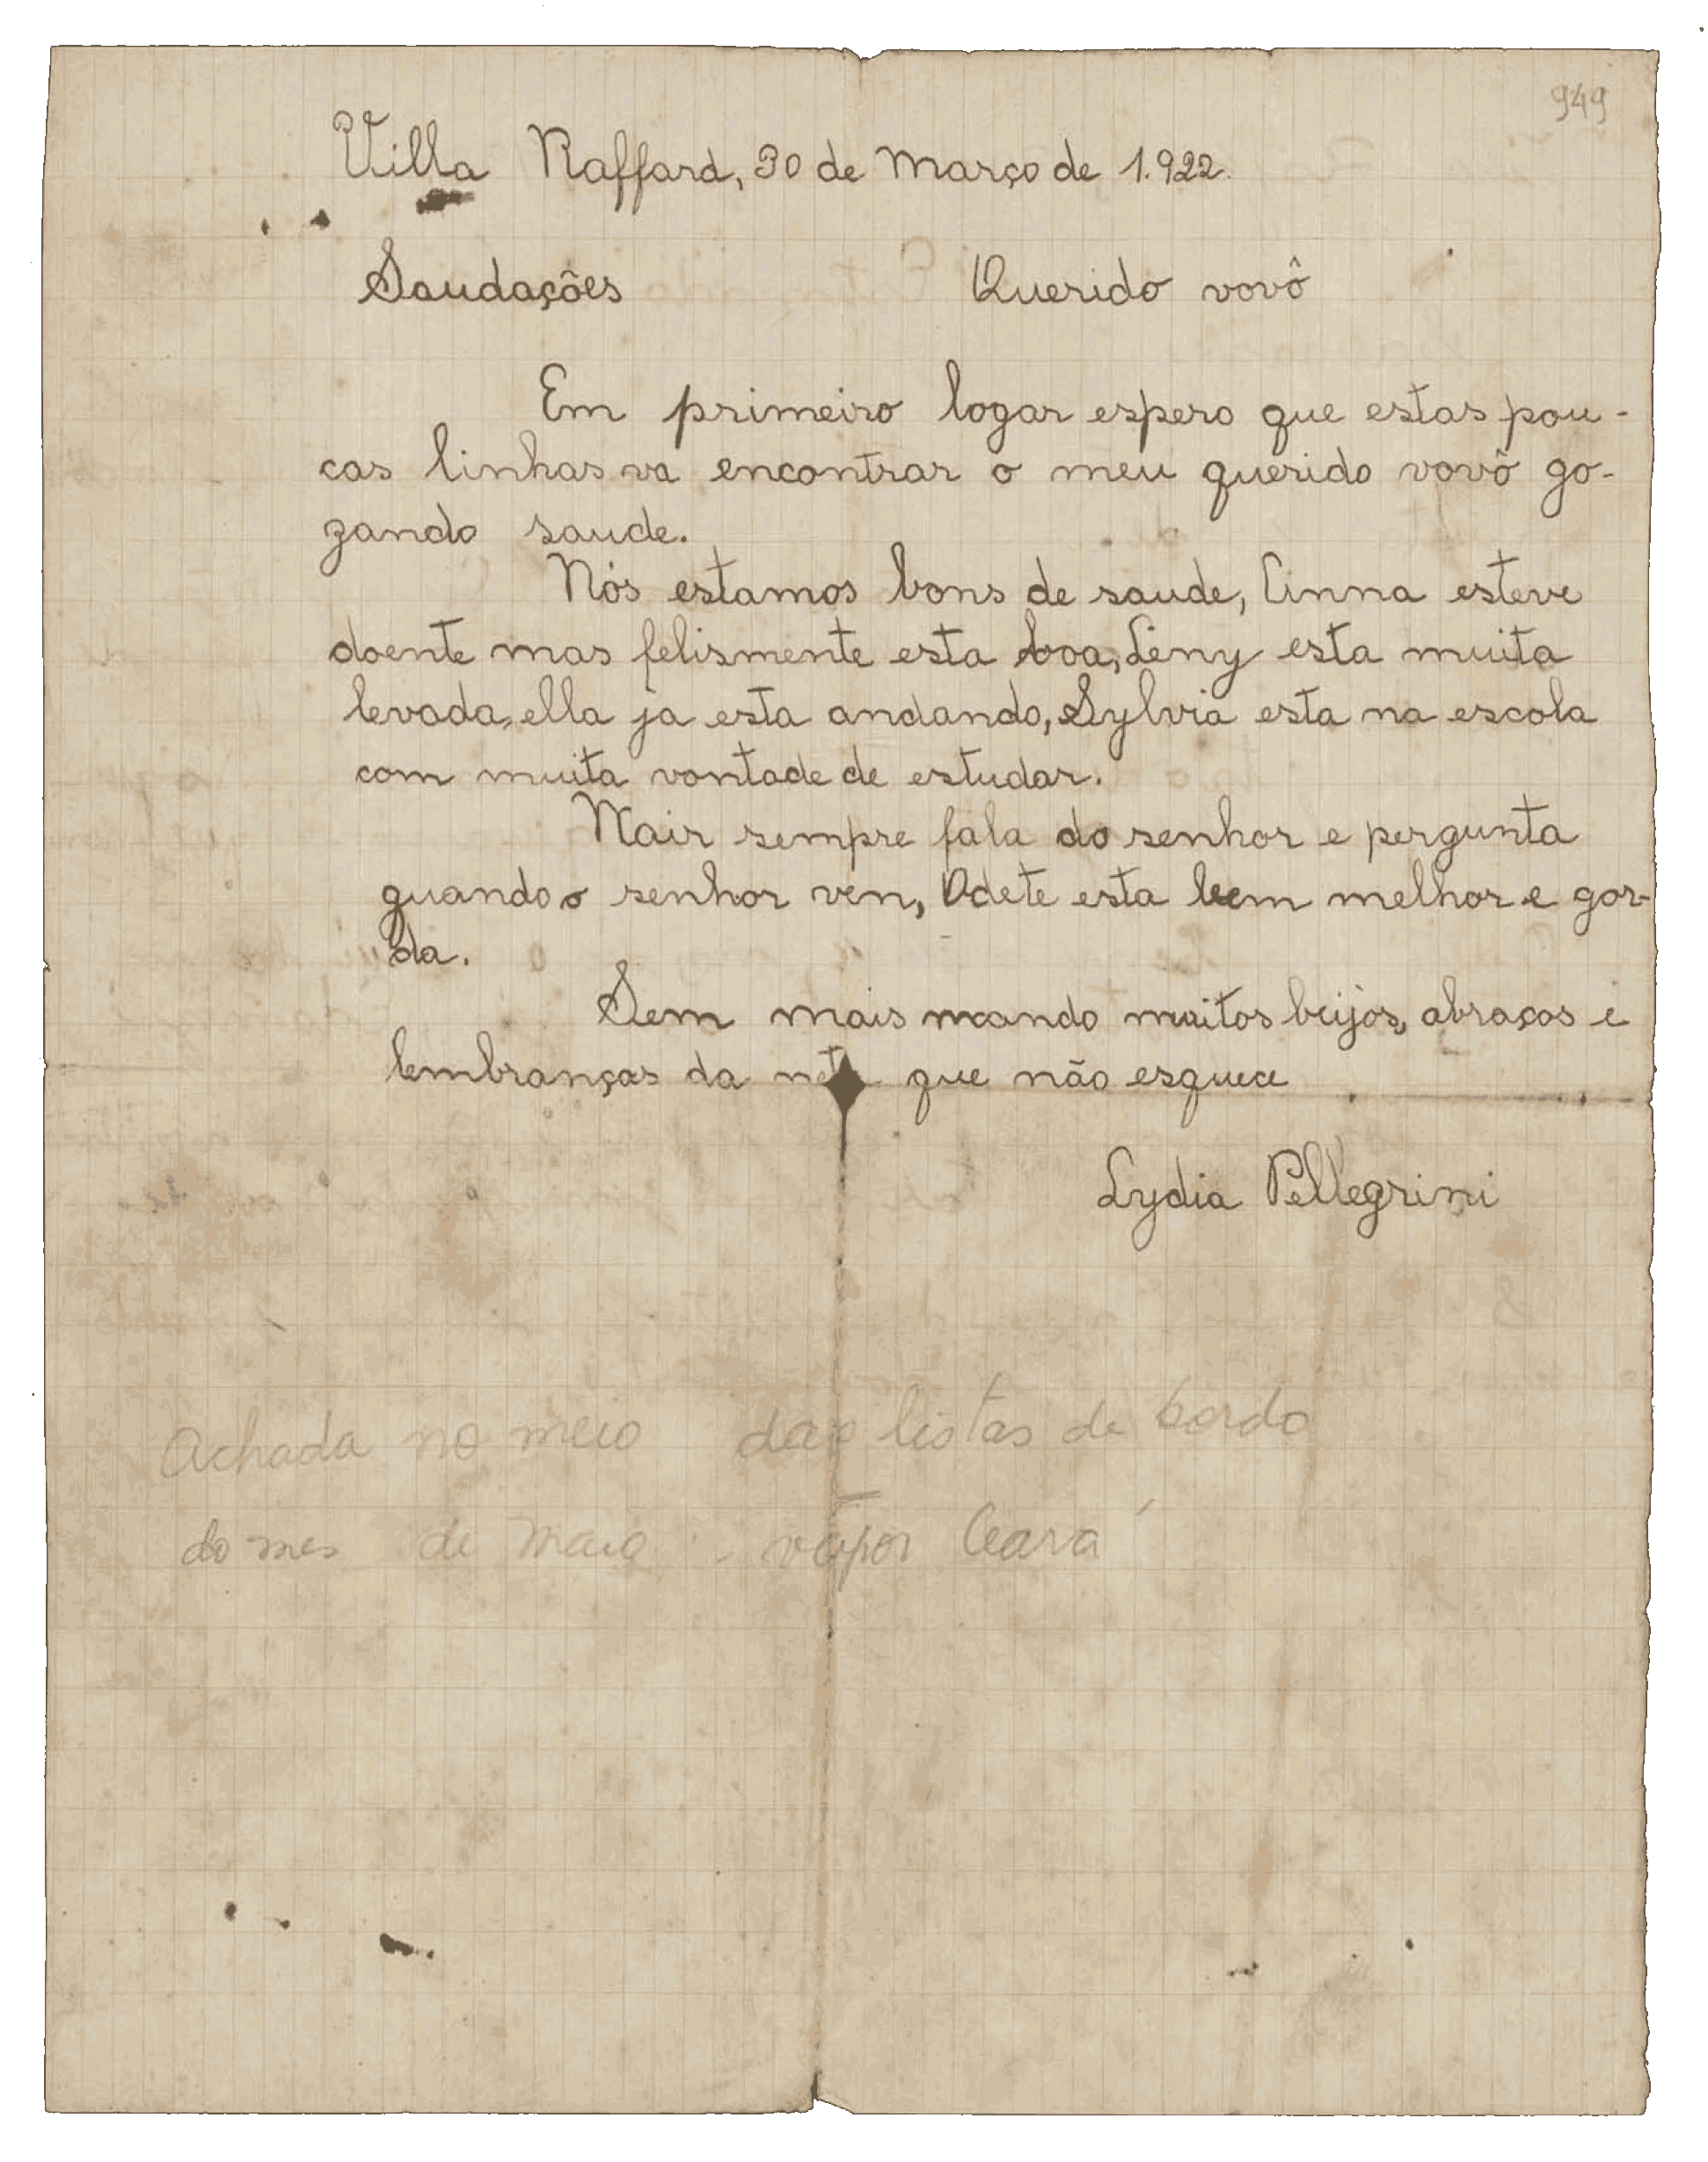 949
Villa Raffard, 30 de Março de 1.922.
Saudações Querido vovô
Em primeiro logar espero que estas pou-
cas linhas va encontrar o meu querido vovô go-
zando saude.
Nós estamos bons de saude, Anna esteve
doente mas felismente esta boa, Leny esta muita
levada, ella ja esta andando, Sylvia esta na escola
com muita vontade de estudar.
Nair sempre fala do senhor e pergunta
quando o senhor ven, Odete esta bem melhor e gor-
da.
Sem mais mando muitos beijos, abraços e
lembranças da neta que não esquece
Lydia Pellegrini
Achada no meio das listas de bordo
do mes de Maio - vapor Ceará